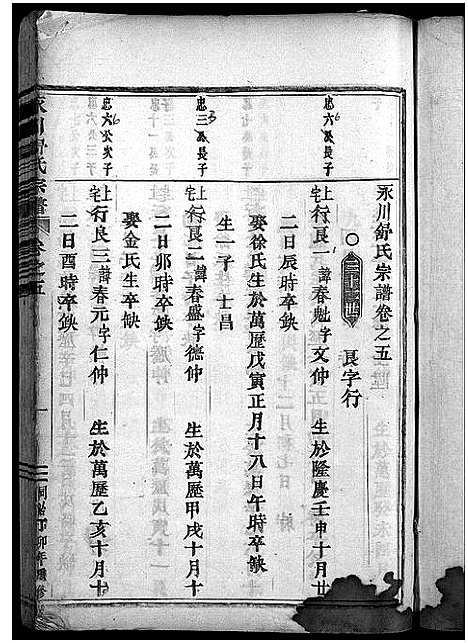 永川舒氏宗譜卷之五
○三十世 良字行
忠六公長子
上宅行良一諱春魁字文仲 生於隆慶壬申十月廿
二日辰時卒缺
娶徐氏生於萬歷戊寅正月十八日午時卒缺
生一子 士昌
忠三公長子
上宅行良二諱春盛字德仲 生於萬歷甲戌十月十
二日卯時卒缺
娶金氏生卒缺
忠六公次子
上宅行良三諱春元字仁仲 生於萬歷乙亥十月十
二日酉時卒缺
永川舒氏宗譜 卷之五